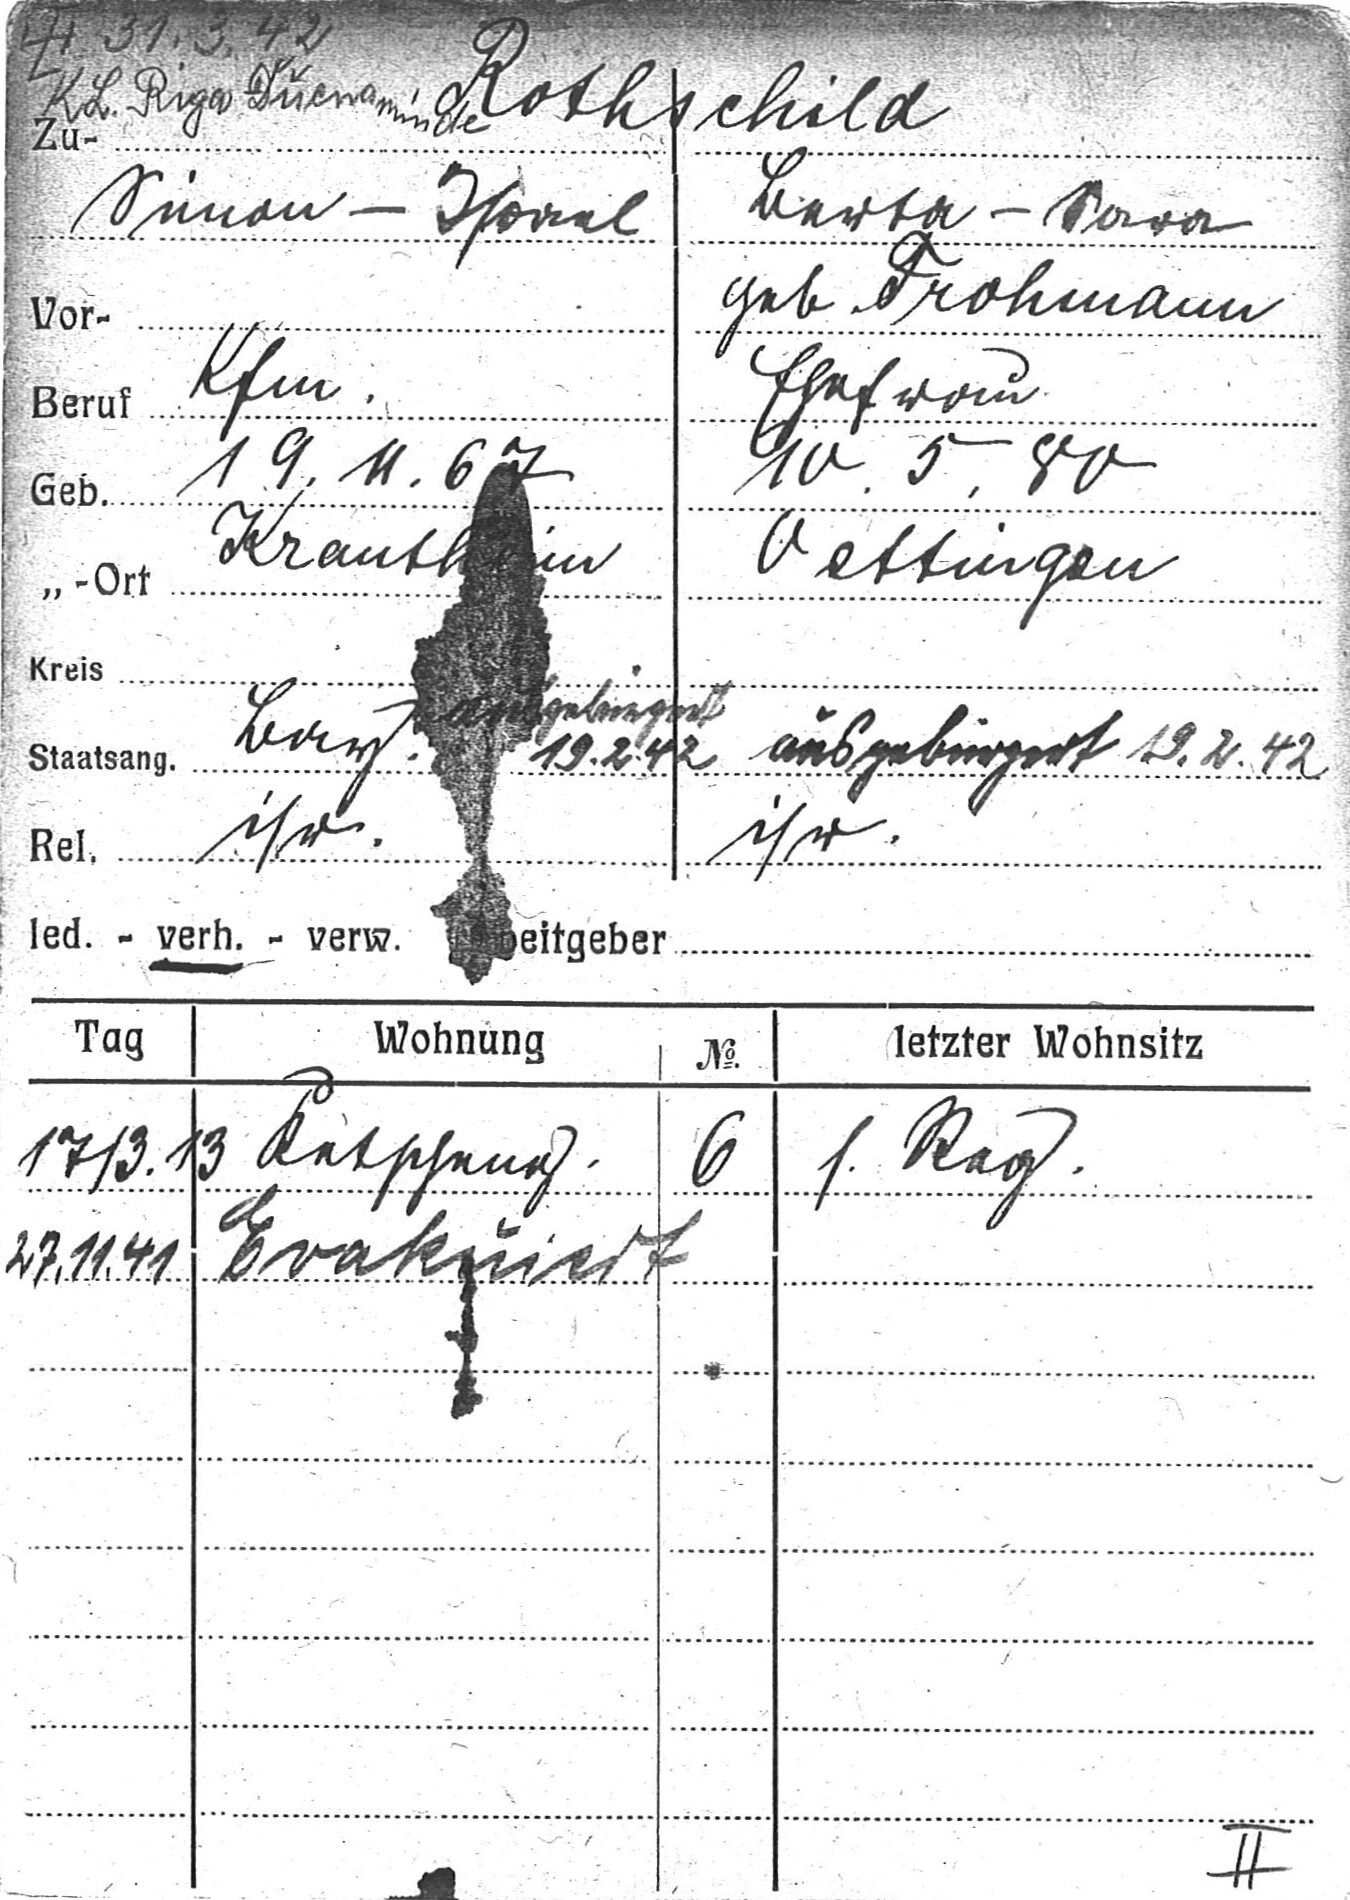 31.3.42
K.L. Riga Dünamünde
Zu- Rothschild
Simon - Israel Berta - Sara
Vor- geb. Frohmann
Beruf Kfm. Ehefrau
Geb. 19. 11. 67 10. 5. 80
„-Ort Krautheim Oettingen
Kreis
ausgebürgert
Staatsang. Bay. 19.2.42 ausgebürgert 19.2.42
Rel. isr. isr.
led. - verh. - verw. Arbeitgeber
Tag Wohnung No. letzter Wohnsitz
17/3.13 Ketscheng. 6 s. Reg.
27.11.41 Evakuiert
II